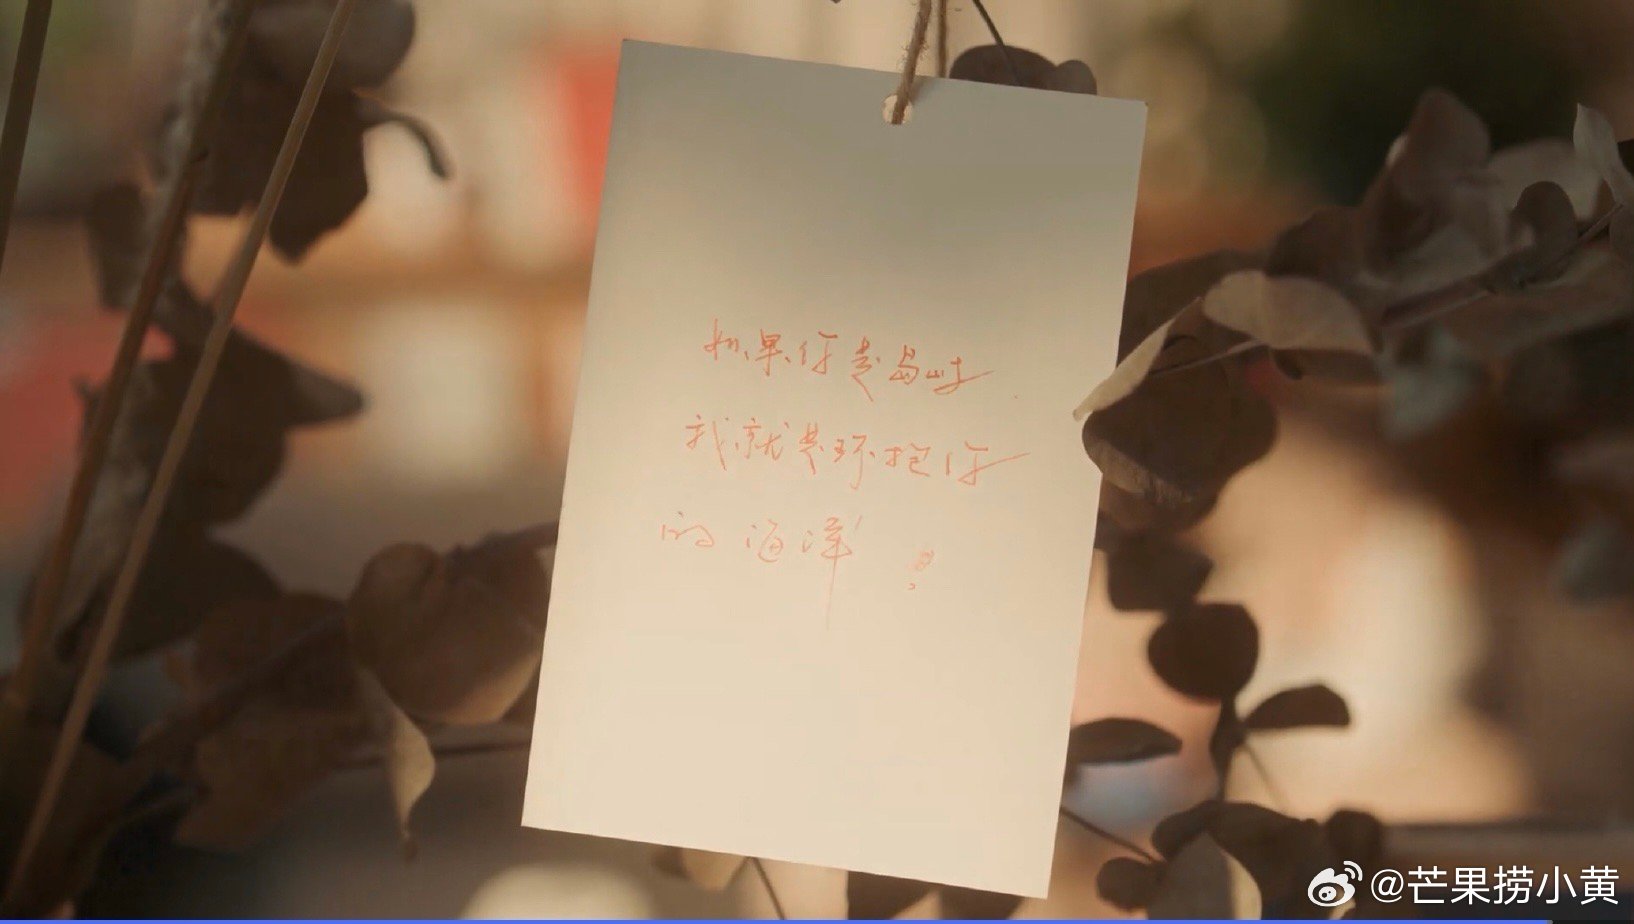 如果你是岛屿
我就是环抱你
的海洋！
@芒果捞小黄